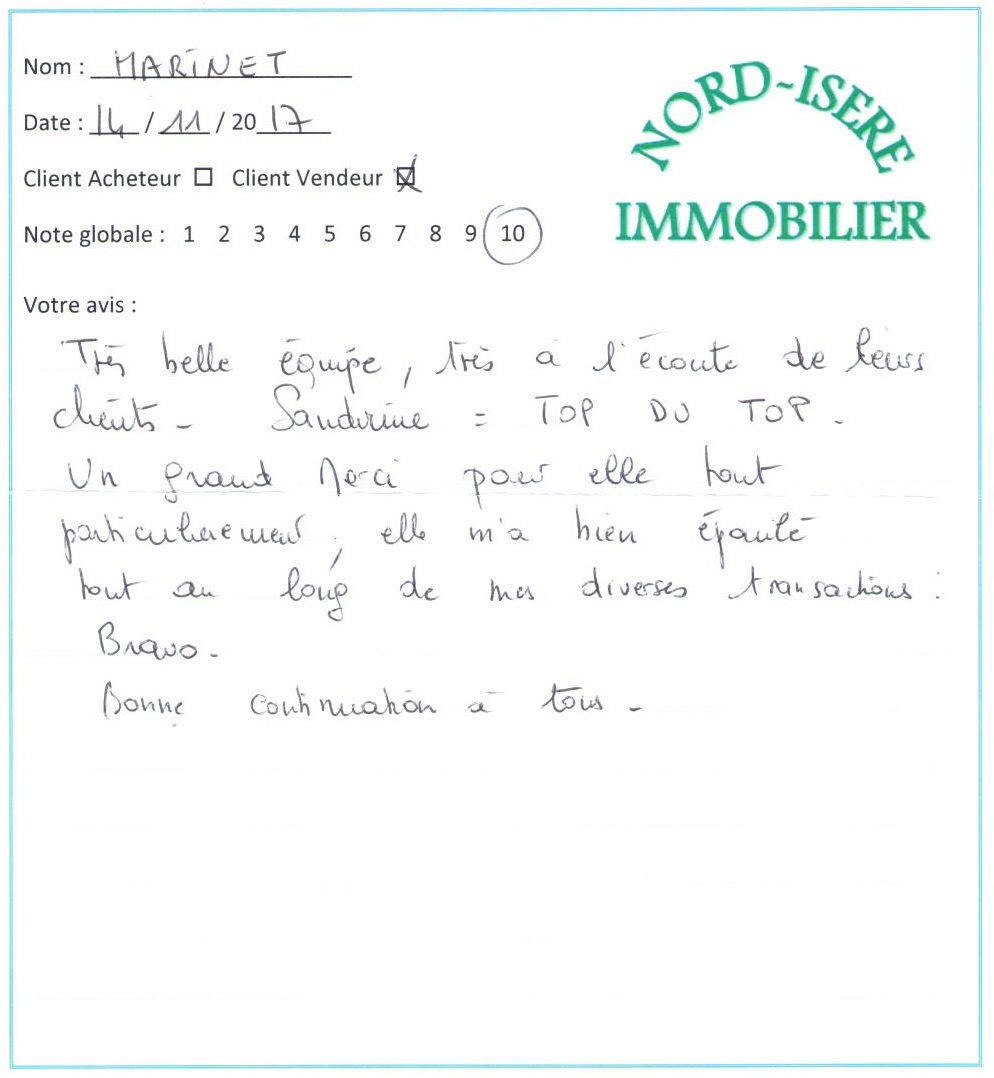 Nom : MARINET
Date : 14 / 11 / 20 17
Client Acheteur ☐ Client Vendeur ☒
Note globale : 1 2 3 4 5 6 7 8 9 10
NORD-ISERE
IMMOBILIER
Votre avis :
Très belle équipe, très à l'écoute de leurs
clients - Sandrine = TOP DU TOP.
Un grand Merci pour elle tout
particulièrement, elle m'a bien épaulé
tout au long de mes diverses transactions :
Bravo -
Bonne continuation à tous -